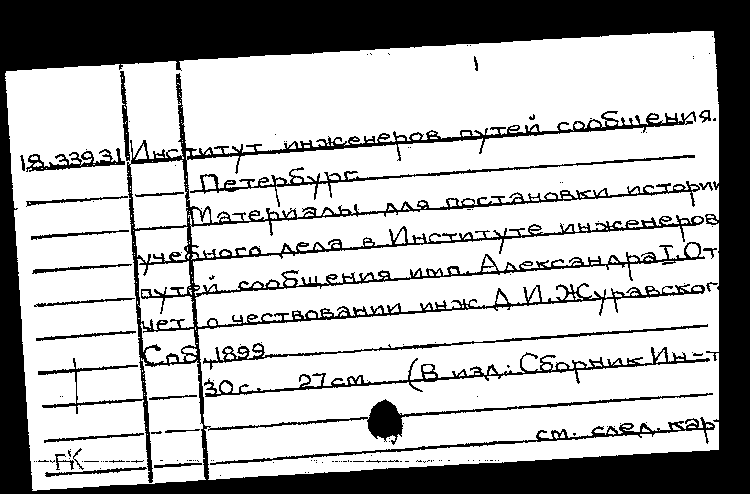 18.339.31 Институт инженеров путей сообщения.
Петербург.
Материалы для постановки истории
учебного дела в Институте инженеров
путей сообщения имп. Александра I. От-
чет о чествовании инж. Д.И. Журавског
Спб., 1899.
30 с. 27 см. (В изд.: Сборник Ин-т
см. след. кар
ГК